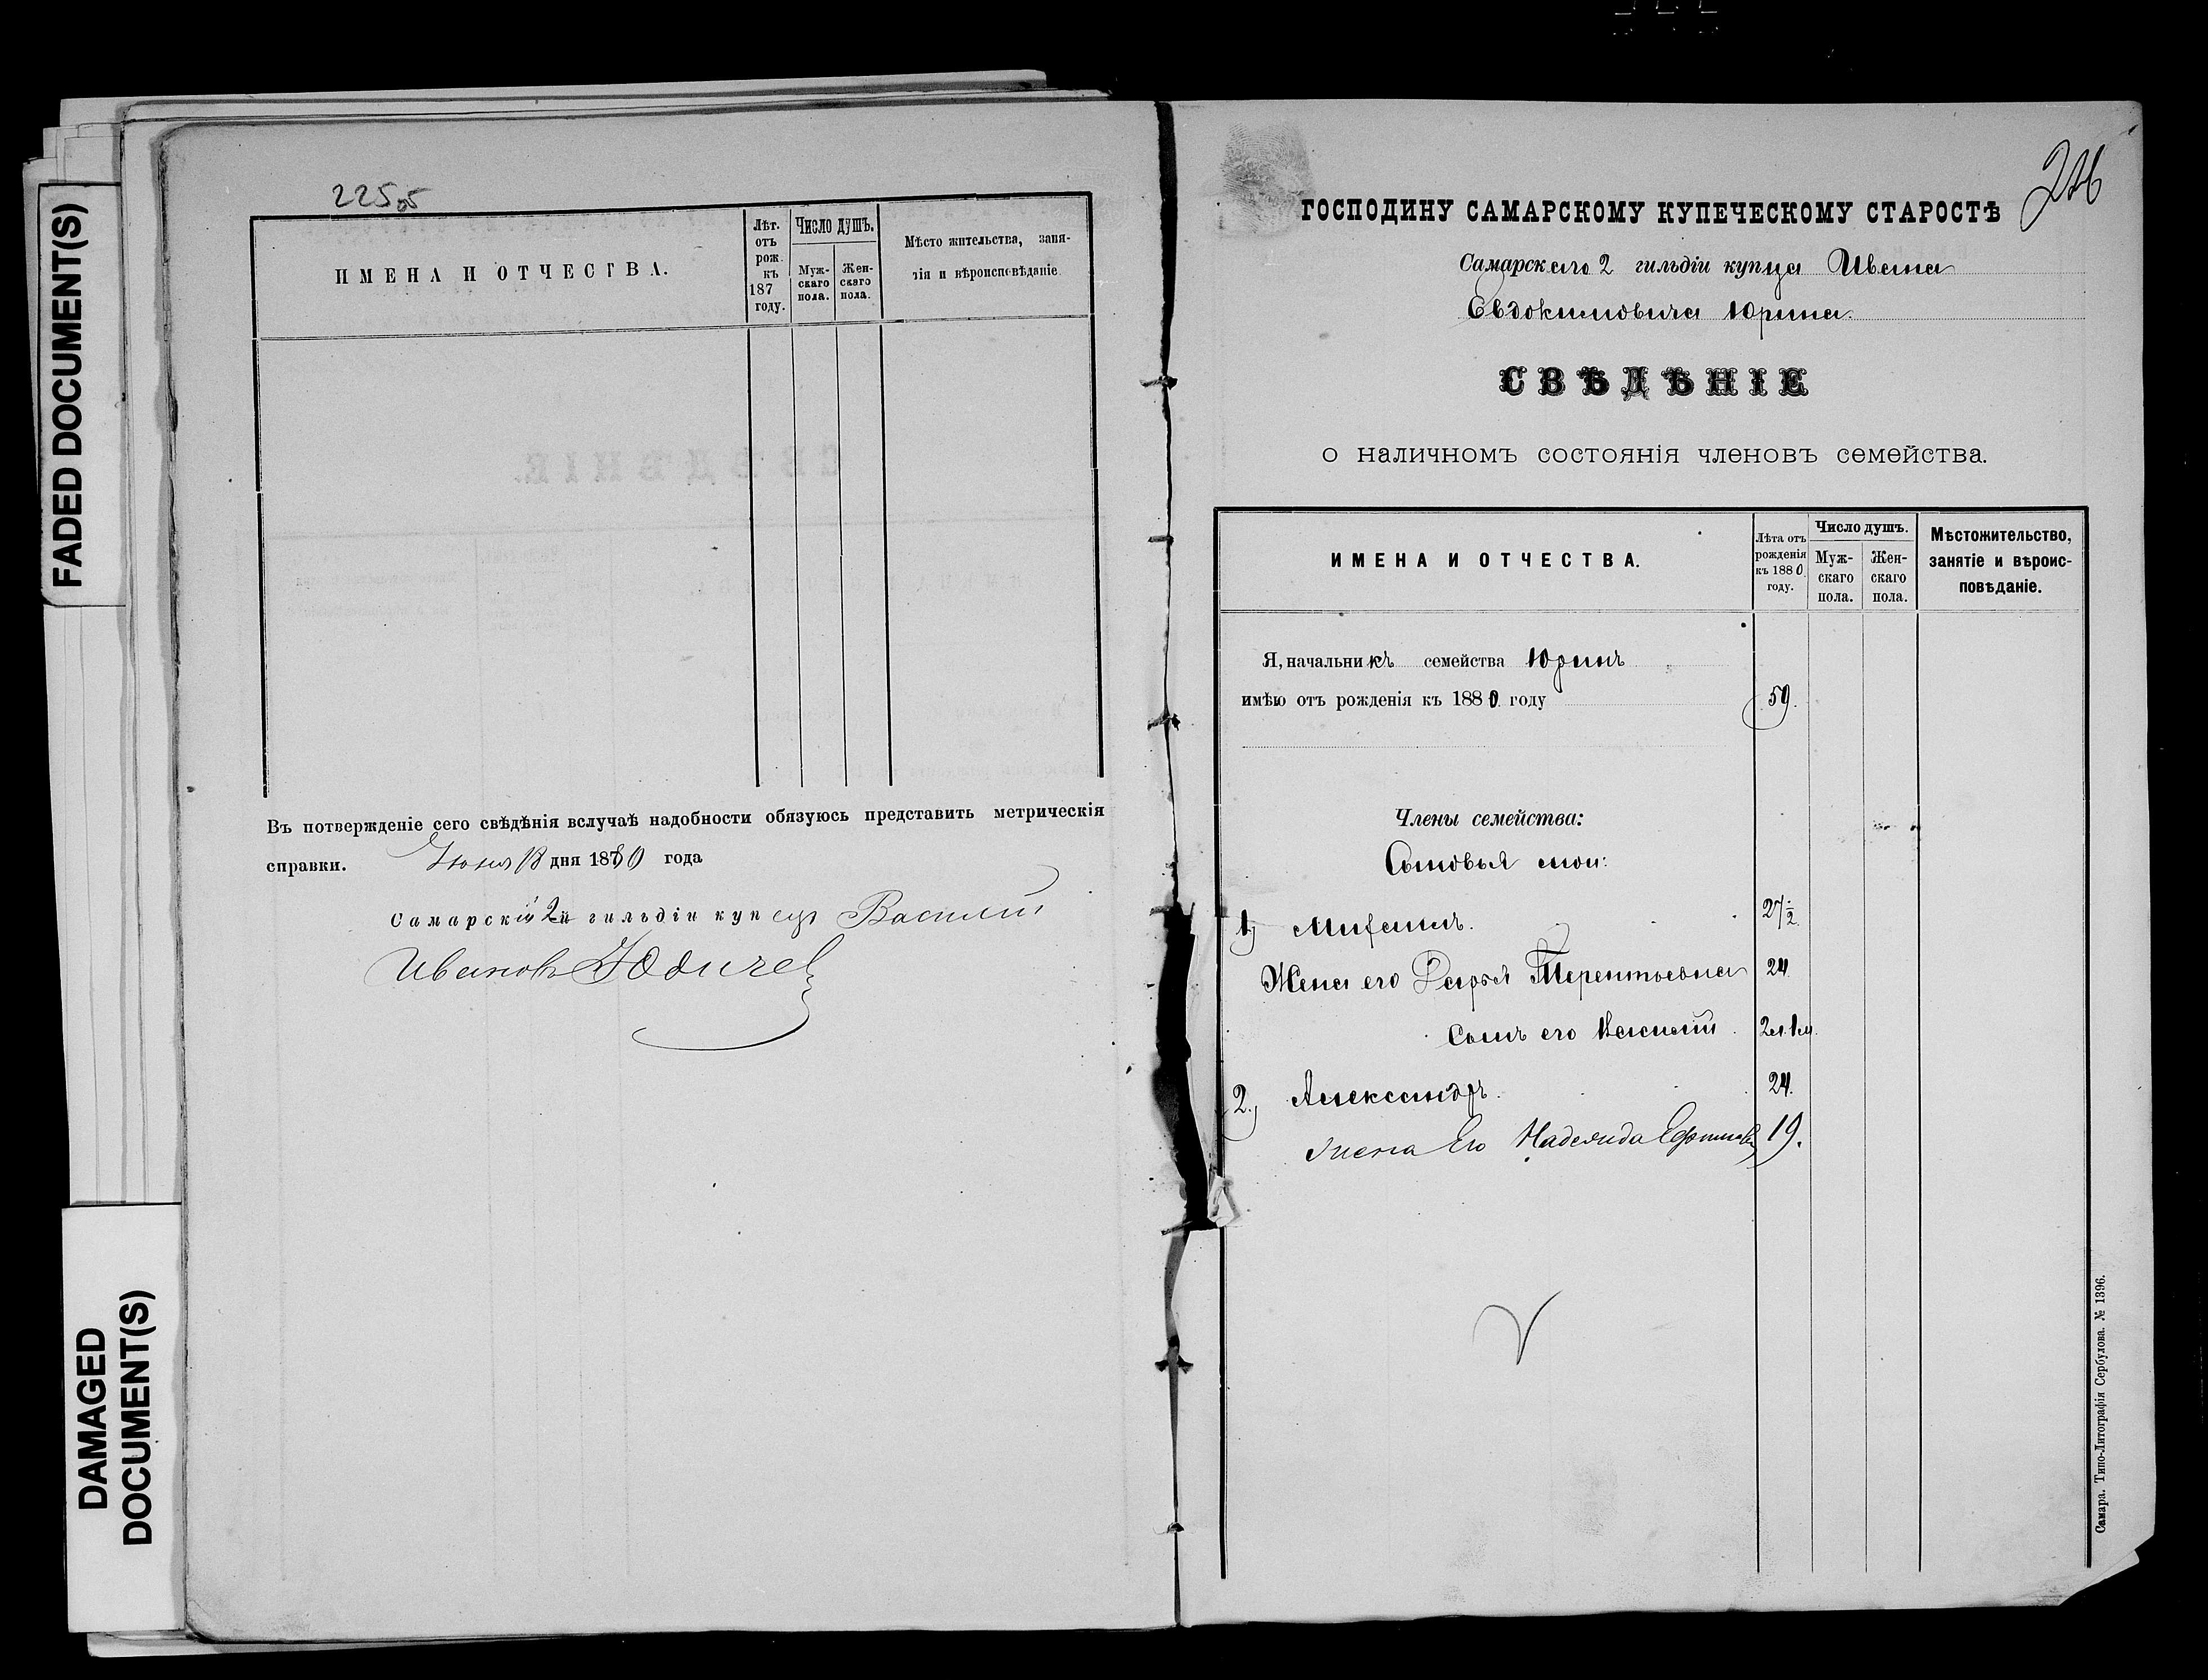 FADED DOCUMENT(S)
DAMAGED
DOCUMENT(S)
225об
ИМЕНА И ОТЧЕСТВА.
Лѣт.
отъ
рож.
къ
187
году.
Число душъ.
Муж-
скаго
пола.
Жен-
скаго
пола.
Мѣсто жительства, заня-
тія и вѣроисповѣданіе
Въ потвержденіе сего свѣдѣнія вслучаѣ надобности обязуюсь представить метрическія
справки. Июня 18 дня 1880 года
Самарскій 2й гильдіи купецъ Василій
Ивановъ
226
ГОСПОДИНУ САМАРСКОМУ КУПЕЧЕСКОМУ СТАРОСТѢ
Самарскаго 2 гильдіи купца Ивана
Евдокимовича Юрина.
СВѢДѢНІЕ
о наличномъ состоянія членовъ семейства.
ИМЕНА И ОТЧЕСТВА.
Лѣта отъ
рожденія
къ 1880
году.
Число душъ.
Муж-
скаго
пола.
Жен-
скаго
пола.
Мѣстожительство,
занятіе и вѣроис-
повѣданіе.
Я, начальникъ семейства Юринъ
имѣю отъ рожденія къ 1880 году 59.
Члены семейства:
Сыновья мои:
1) Михаилъ. 27½
Жена его Дарья Терентьевна 24
Сынъ его Василій 2л. 1м.
2) Александръ. 24.
жена Его Надежда 19.
Самара. Типо-Литографія Сербулова. № 1396.